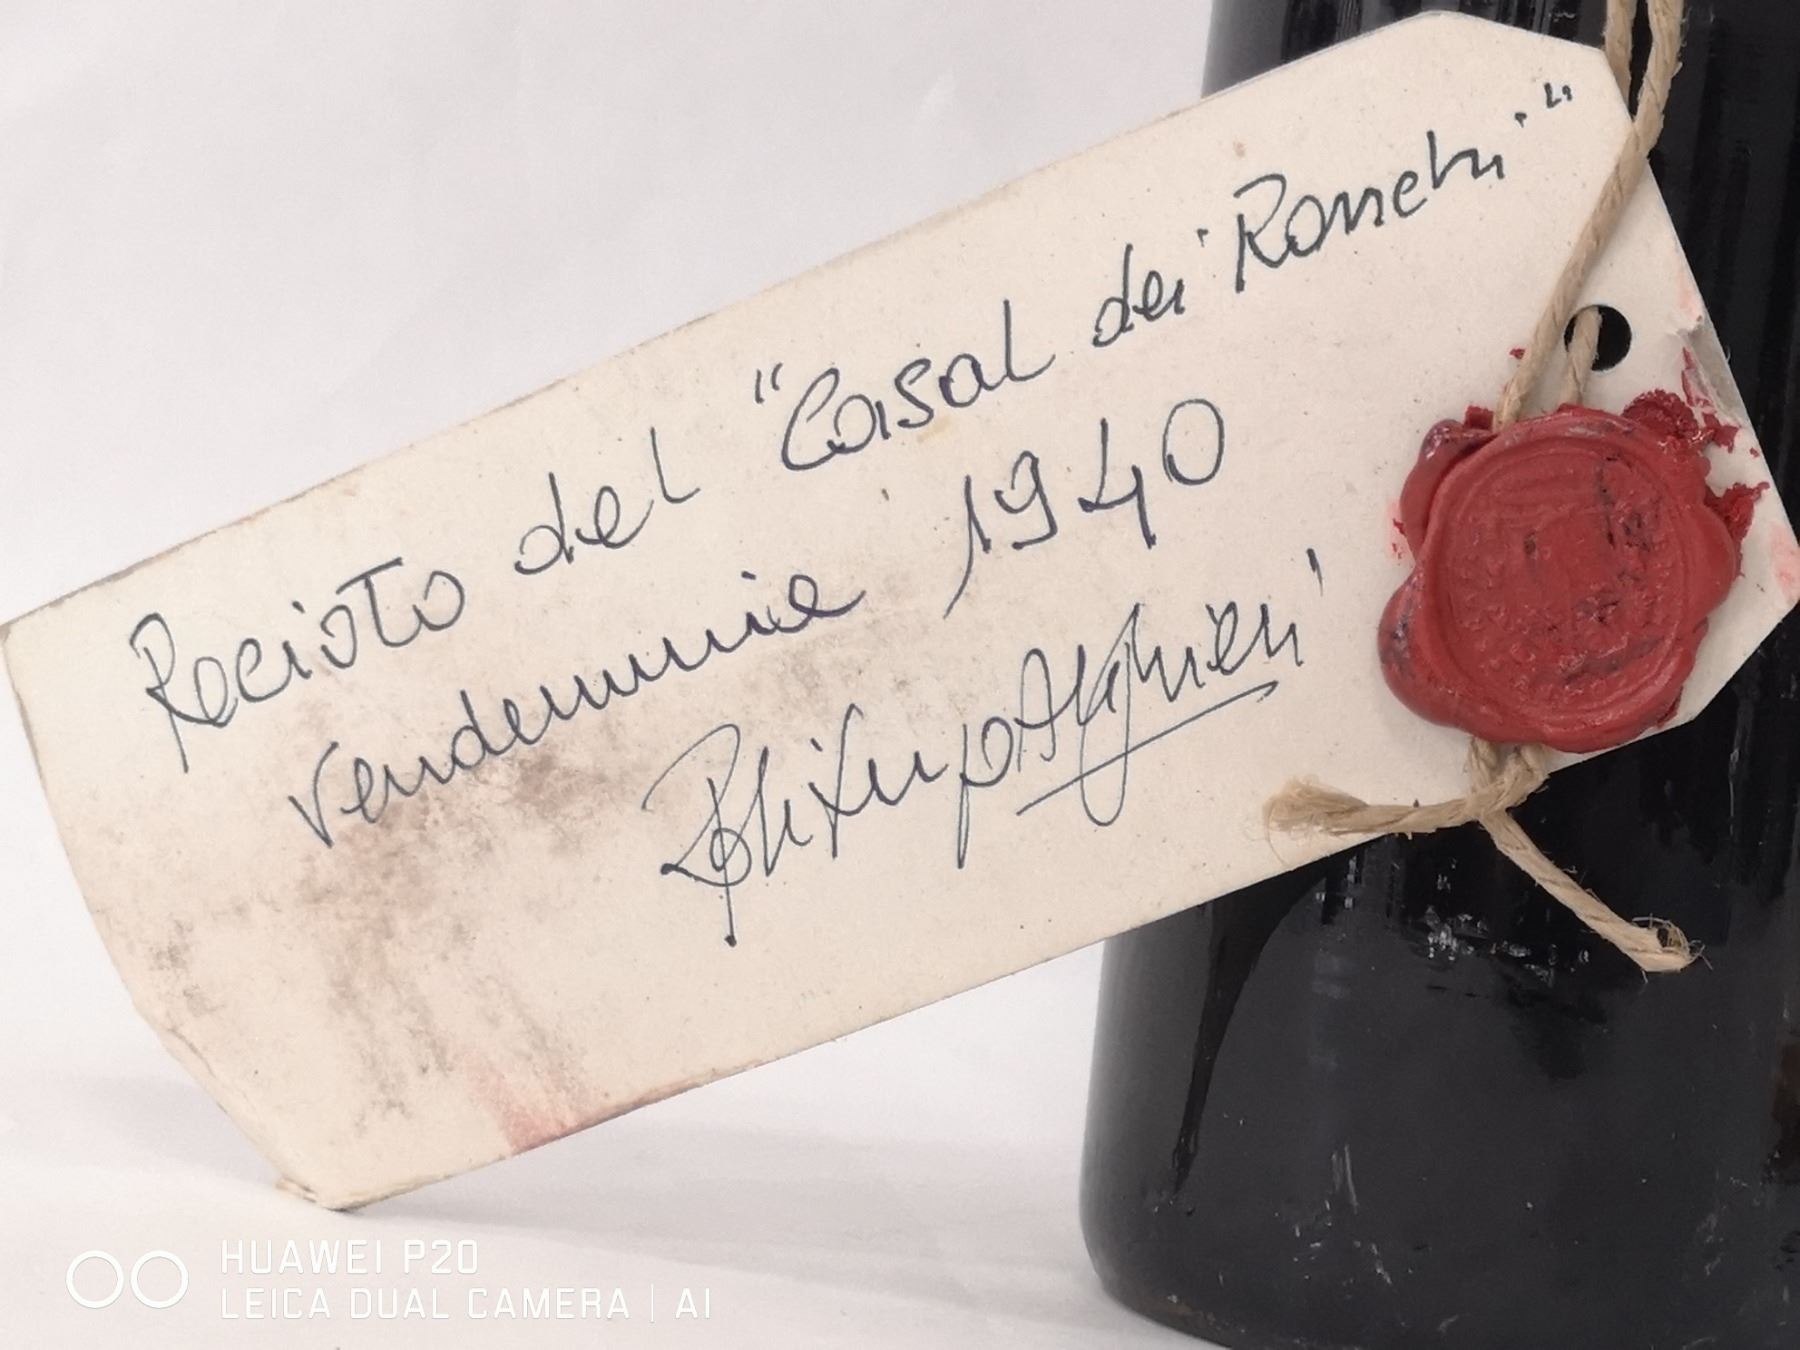 Recioto del "Casal dei Ronchi"
Vendemmia 1940
Alighieri
HUAWEI P20
LEICA DUAL CAMERA | AI